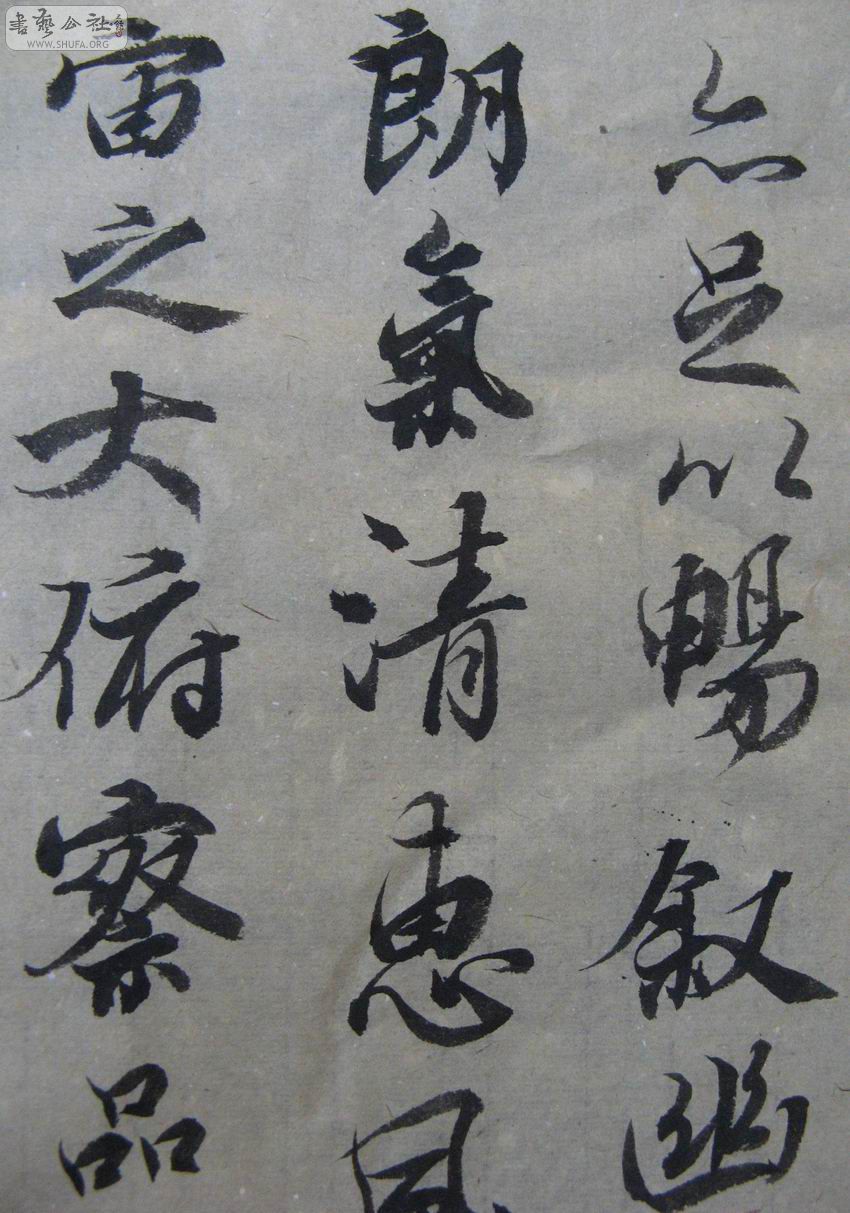 亦足以暢敘幽
朗氣清惠風
宙之大俯察品
書藝公社
WWW.SHUFA.ORG